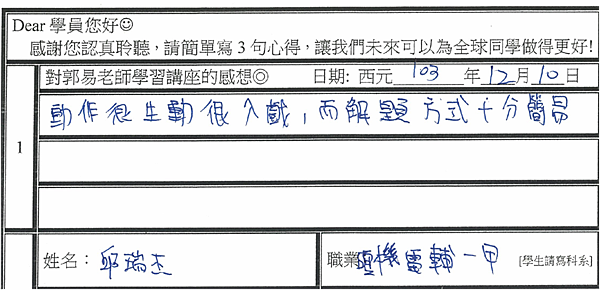 Dear 學員您好☺
感謝您認真聆聽，請簡單寫 3 句心得，讓我們未來可以為全球同學做得更好!
1 對郭易老師學習講座的感想◎ 日期: 西元 103 年 12 月 10 日
動作很生動很入戲，而解題方式十分簡易
姓名：邱瑞杰 職業 機電輔一甲 [學生請寫科系]